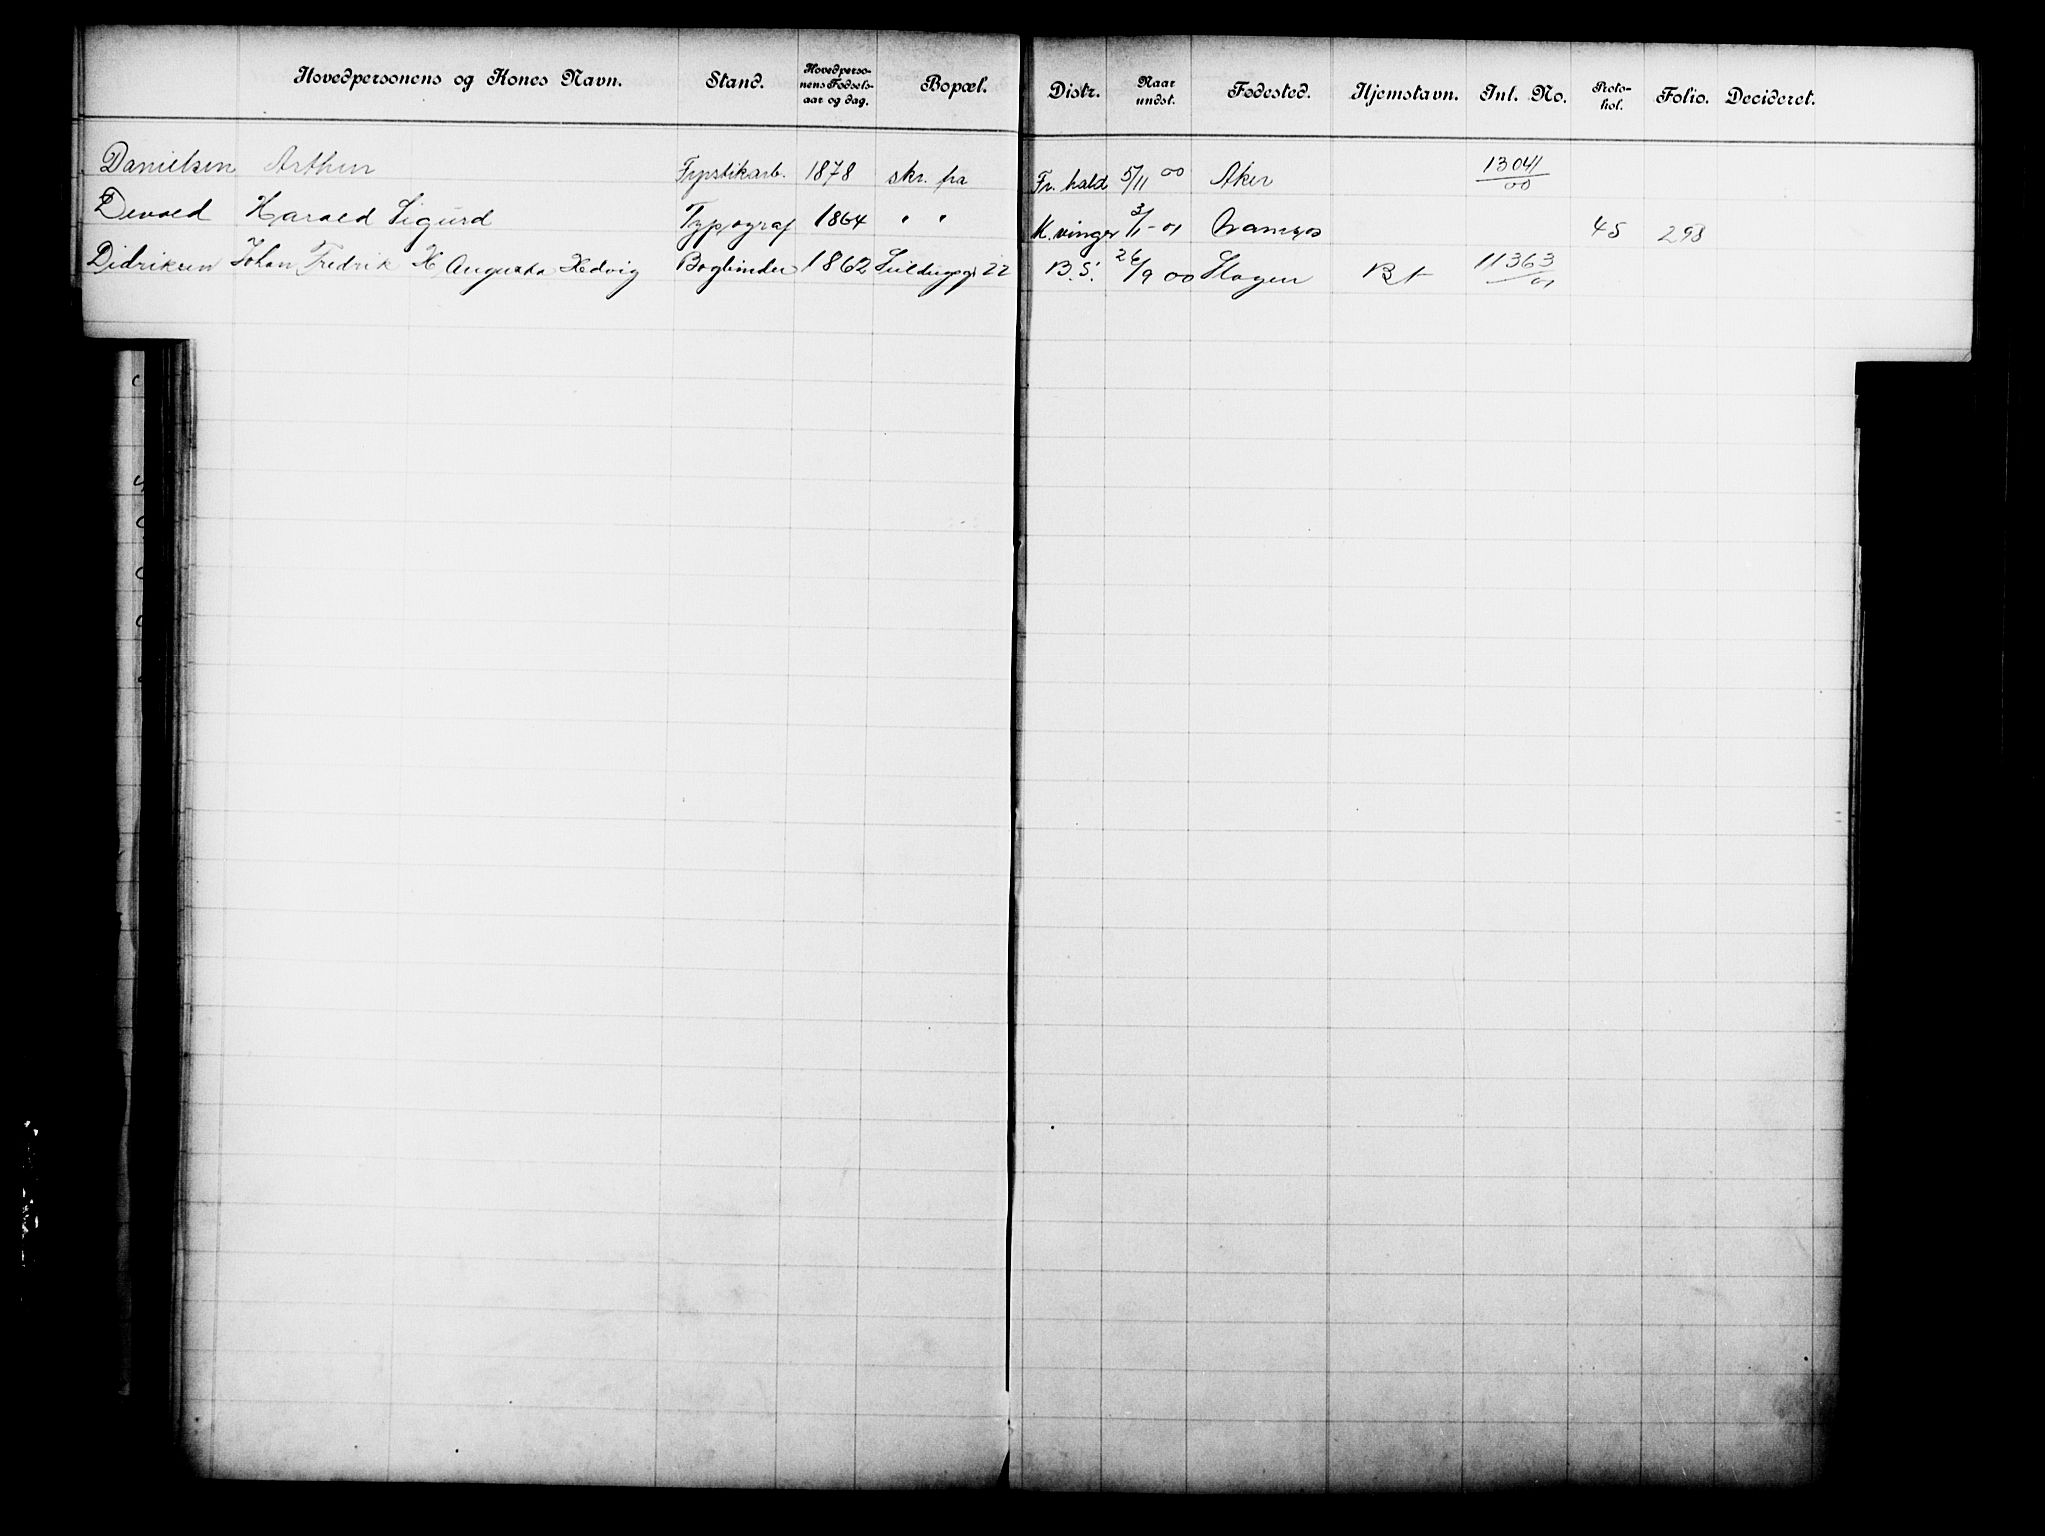 Hovedpersonens og Kones Navn. Stand. Hovedperso-nens Fødsels-aar og dag. Bopæl. Distr. Naar undst. Fødested. Hjemstavn. Int. No. Proto-kol. Folio. Decideret.
Danielsen Arthur Fyrstikarb. 1878 skr. fra Fr. hald 5/11 00 Aker 13041/00
Devold Harald Sigurd Typograf 1864 " " K.vinger 3/1-01 Namsos 45 298
Didriksen Johan Fredrik H Augusta Hedvig Bogbinder 1862 22 B.S. 26/9 00 Slagen Bt 11363/01